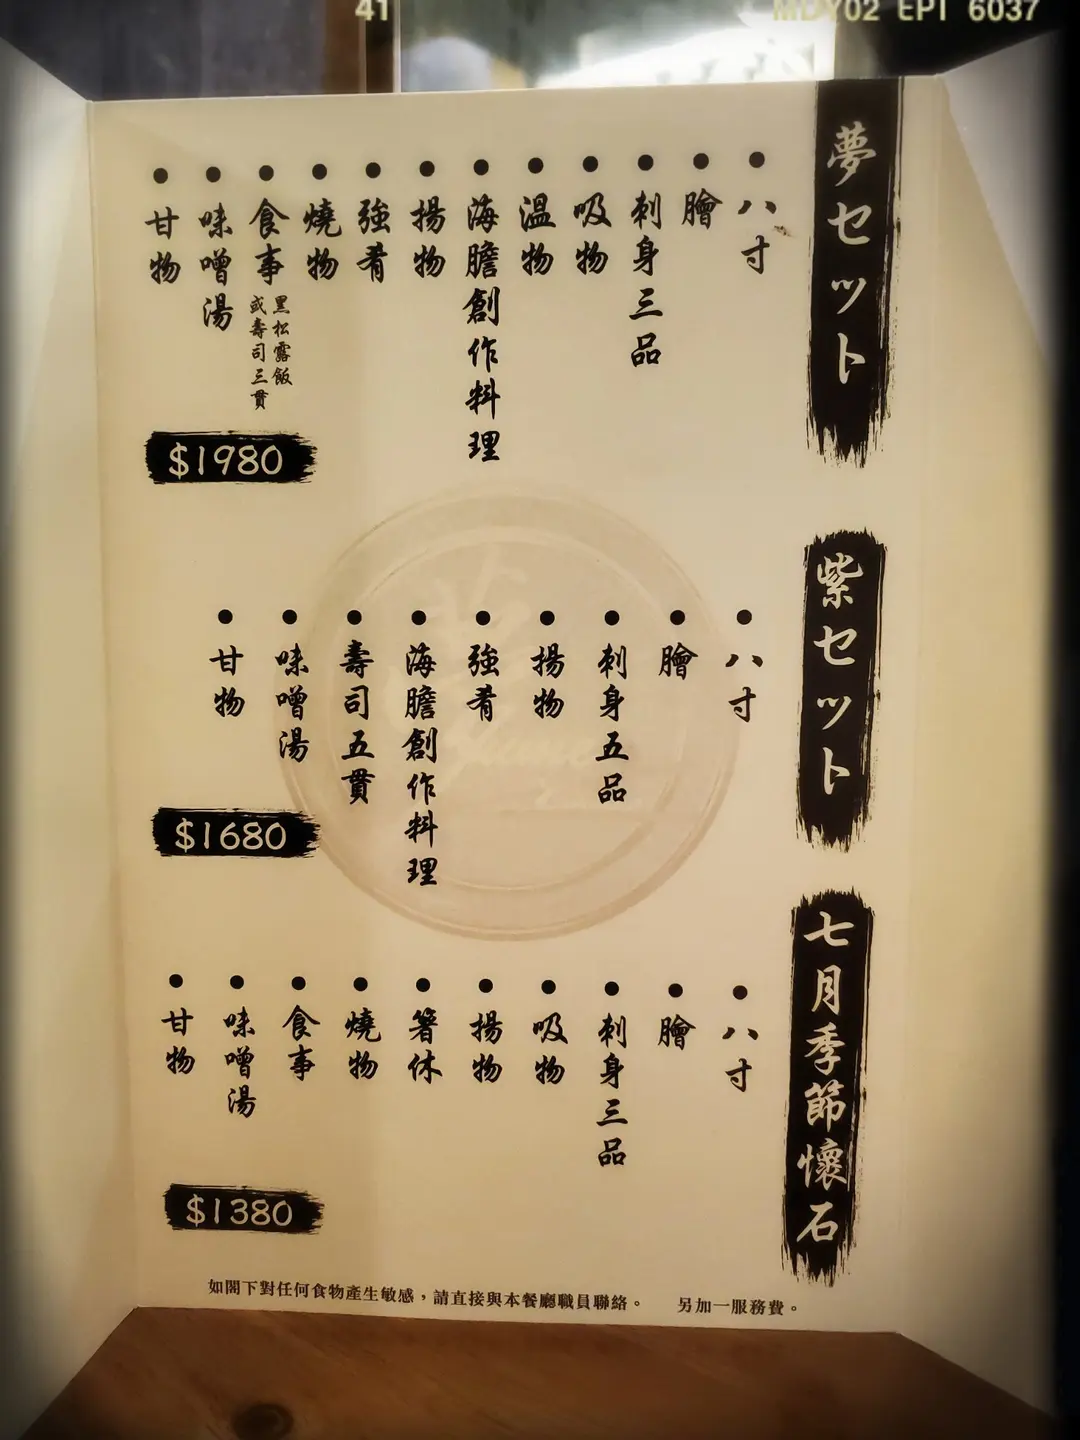 41
MDY02 EPI 6037
夢セット
八寸
膾
刺身三品
吸物
温物
海膽創作料理
揚物
強肴
燒物
食事
黑松露飯
或壽司三貫
味噌湯
甘物
$1980
紫セット
八寸
膾
刺身五品
揚物
強肴
海膽創作料理
壽司五貫
味噌湯
甘物
$1680
七月季節懷石
八寸
膾
刺身三品
吸物
揚物
箸休
燒物
食事
味噌湯
甘物
$1380
如閣下對任何食物產生敏感，請直接與本餐廳職員聯絡。
另加一服務費。